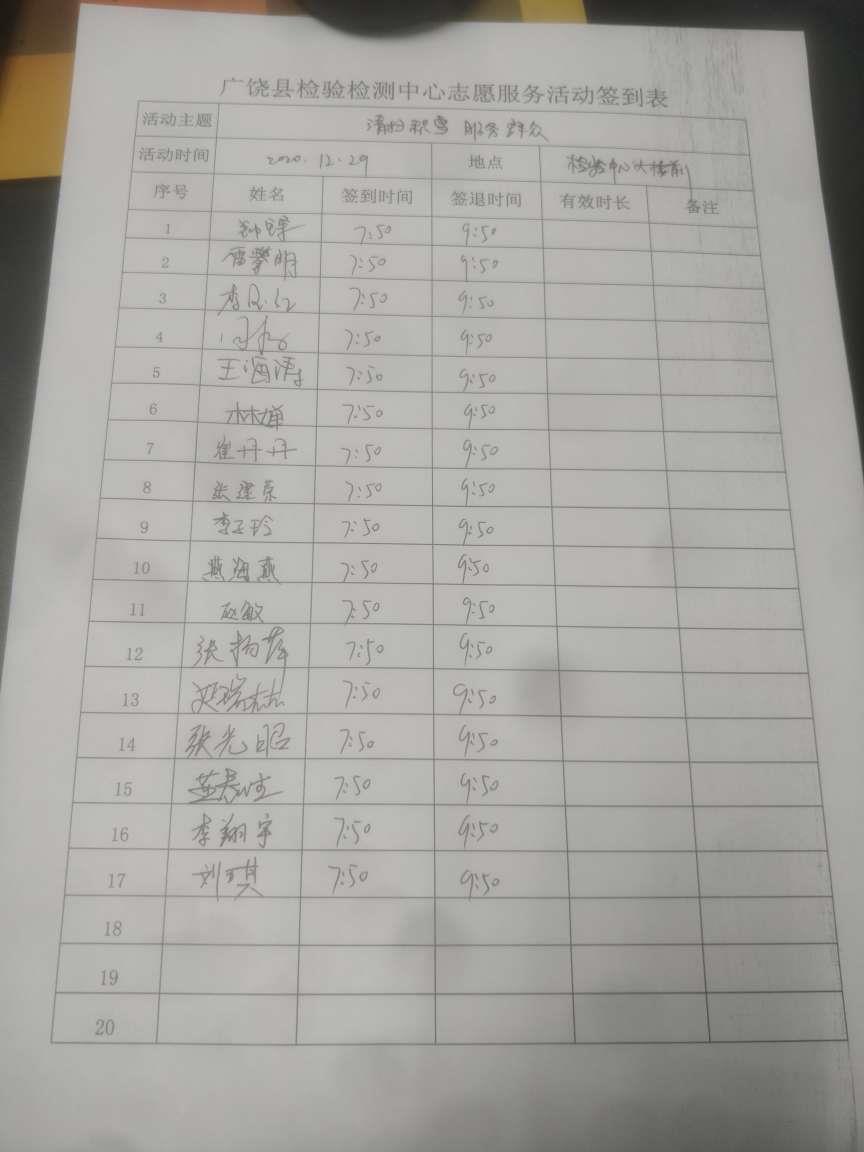 广饶县检验检测中心志愿服务活动签到表
活动主题 清扫积雪 服务群众
活动时间 2020.12.29 地点 检验中心大楼前
序号 姓名 签到时间 签退时间 有效时长 备注
1 7:50 9:50
2 雷攀明 7:50 9:50
3 7:50 9:50
4 7:50 9:50
5 王海涛 7:50 9:50
6 林婵 7:50 9:50
7 崔丹丹 7:50 9:50
8 张建荣 7:50 9:50
9 李玉玲 7:50 9:50
10 燕海燕 7:50 9:50
11 赵敏 7:50 9:50
12 张杨萍 7:50 9:50
13 7:50 9:50
14 张光昭 7:50 9:50
15 7:50 9:50
16 李翔宇 7:50 9:50
17 刘琪 7:50 9:50
18
19
20